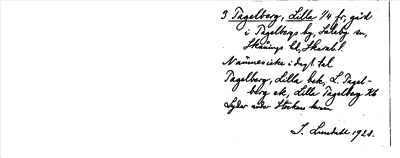 3 Tagelberg, Lilla 1/4 fr, gård
i Tagelbergs by, Saleby sn,
Skånings hd, Skarab. l.
Nämnes icke i dagl. tal
Tagelberg, Lilla bek, L. Tagel-
berg ek, Lilla Tagelberg Kb
Lyder under
J. Lundahl 1928.